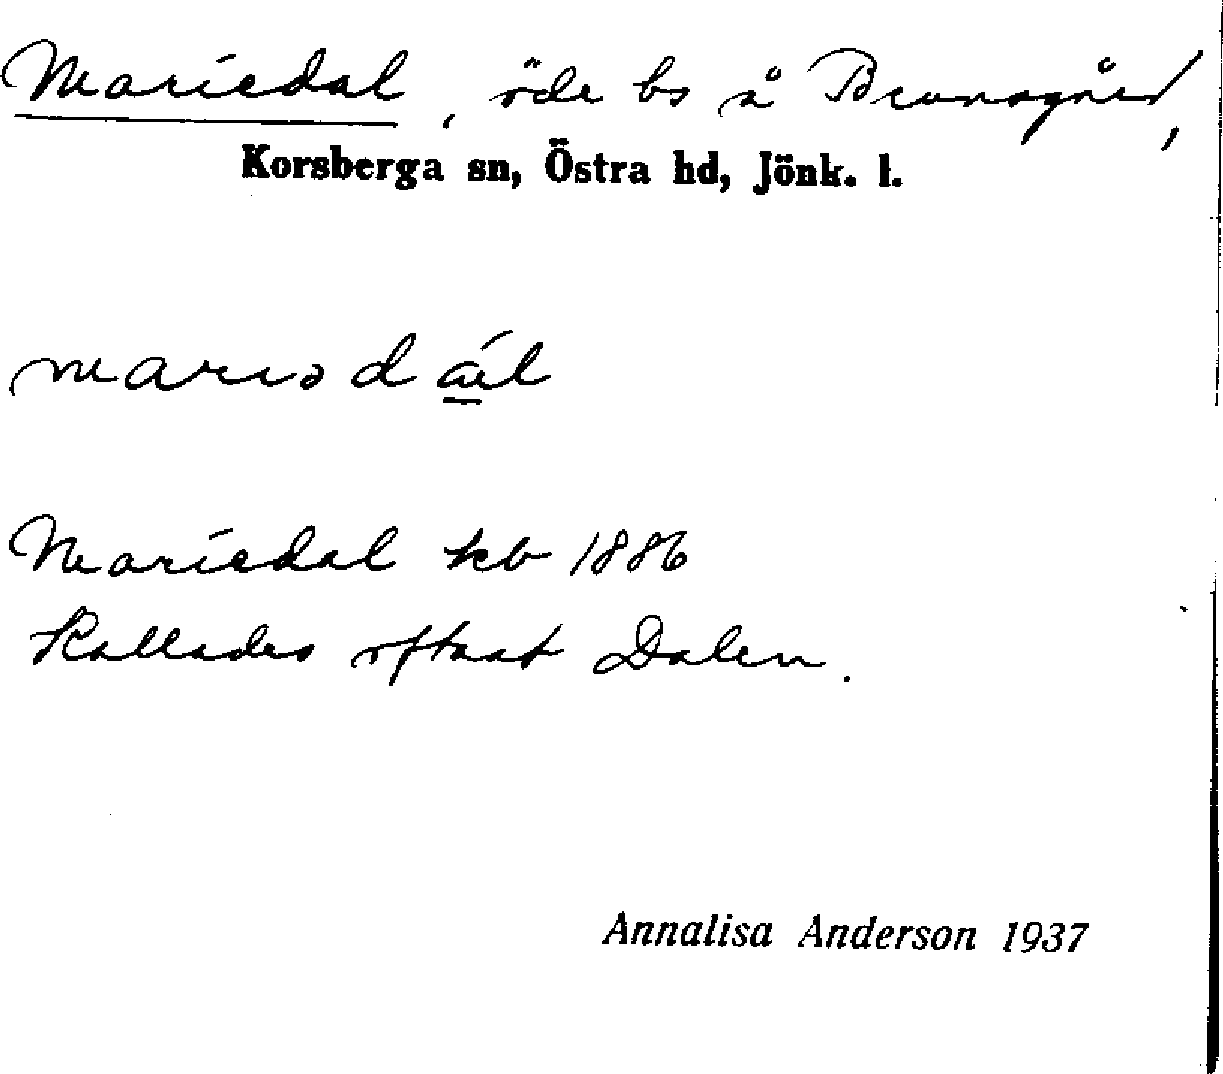 Mariedal, öde bs å Brunsgård,
Korsberga sn, Östra hd, Jönk. l.
mariədál
Mariedal kb 1886
Kallades oftast Dalen.
Annalisa Anderson 1937